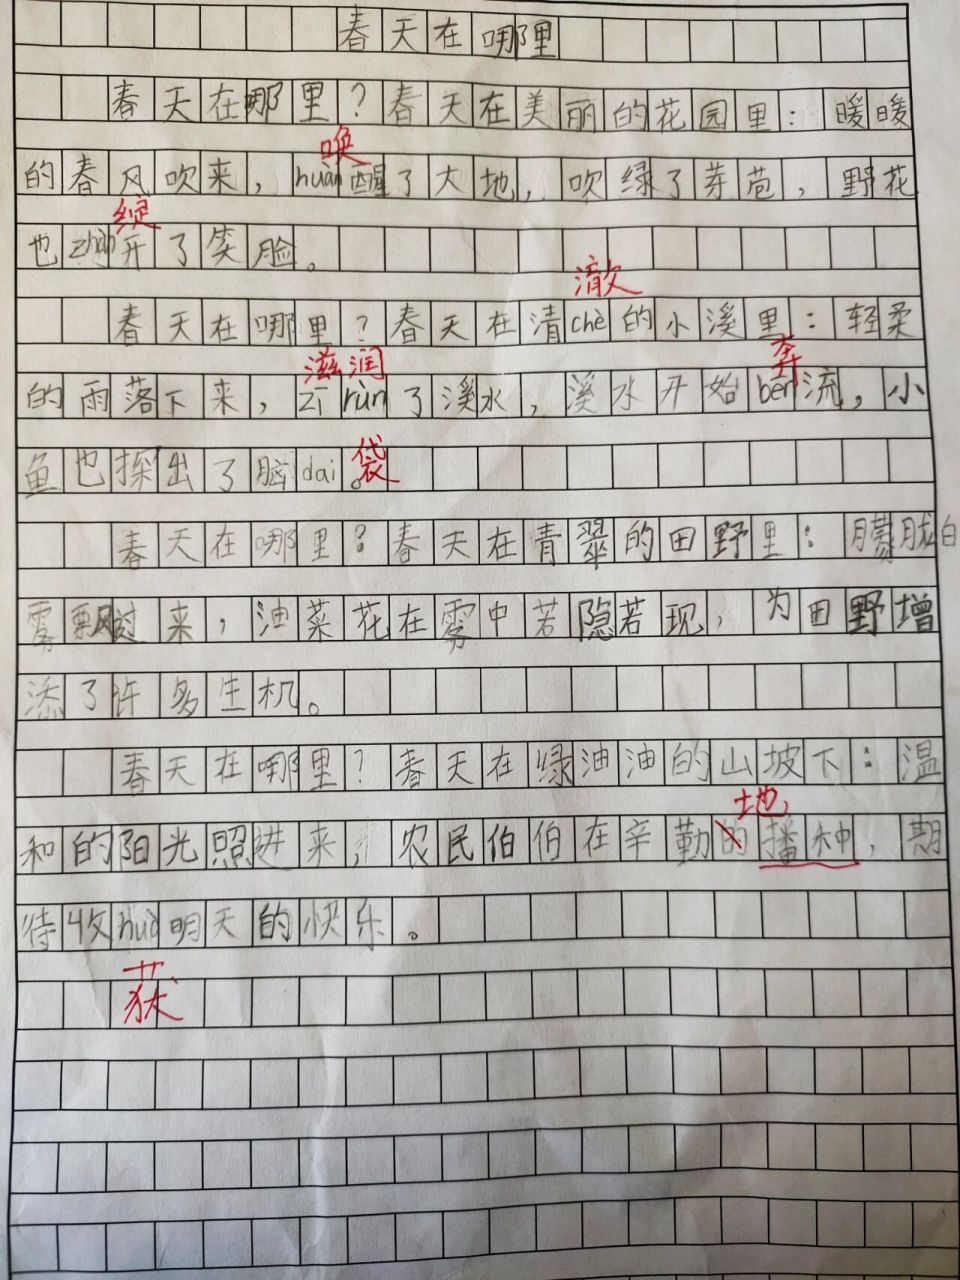 春天在哪里
春天在哪里？春天在美丽的花园里：暖暖
唤
的春风吹来，huàn醒了大地，吹绿了芽苞，野花
绽
也zhàn开了笑脸。
澈
春天在哪里？春天在清chè的小溪里：轻柔
滋润 奔
的雨落下来，zī rùn了溪水，溪水开始bēn流，小
鱼也探出了脑dai。袋
春天在哪里？春天在青翠的田野里：朦胧白
雾飘过来，油菜花在雾中若隐若现，为田野增
添了许多生机。
春天在哪里？春天在绿油油的山坡下：温
地
和的阳光照进来，农民伯伯在辛勤的播种，期
待收huò明天的快乐。
获